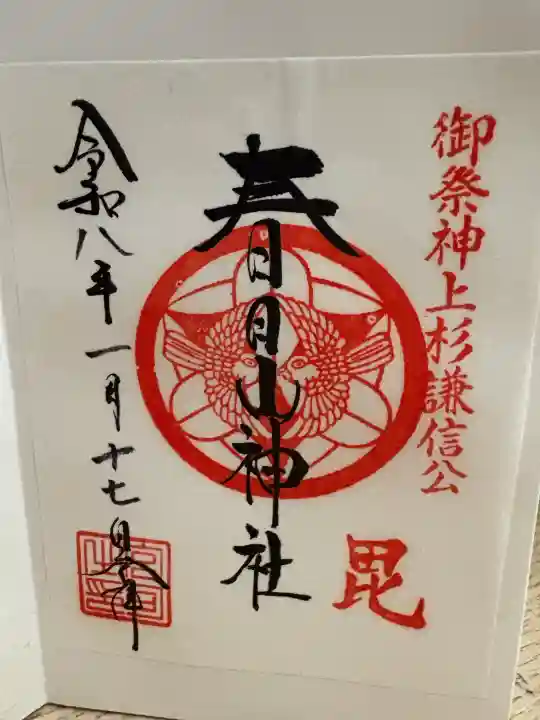 御祭神上杉謙信公
毘
春日山神社
令和八年一月十七日奉拝